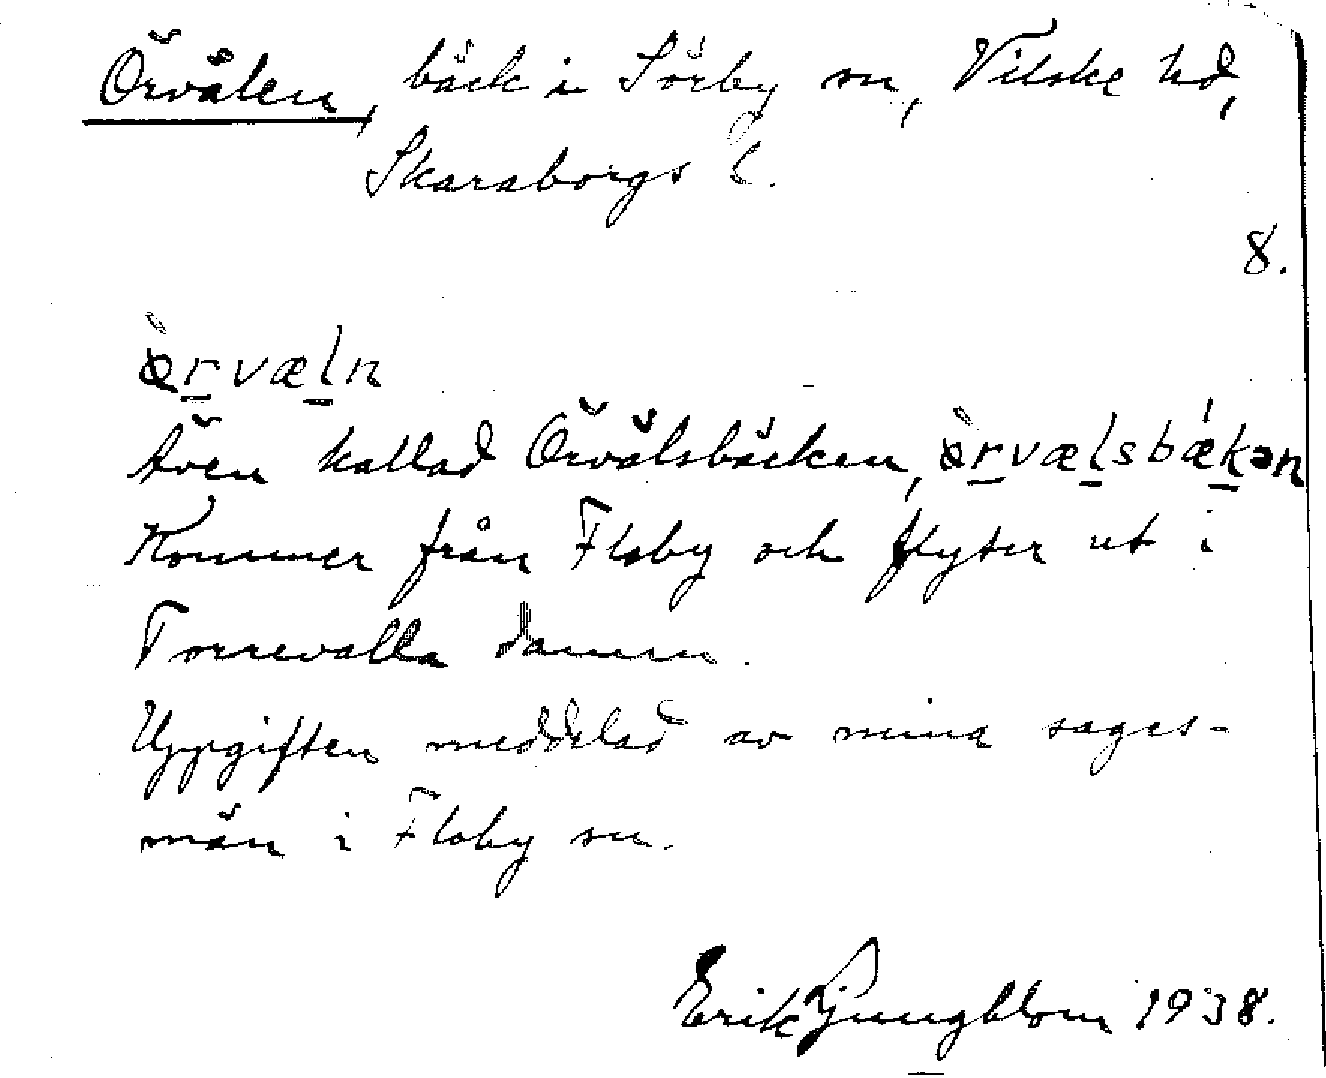 Örvålen, bäck i Sörby sn, Vilske hd,
Skaraborgs l.
8.
ö̀rvæln
Även kallad Örvålsbäcken, ö̀rvælsbǽkən
Kommer från Floby och flyter ut i
Torrevalla damm.
Uppgiften meddelad av mina sages-
män i Floby sn.
Erik Ljungblom 1938.